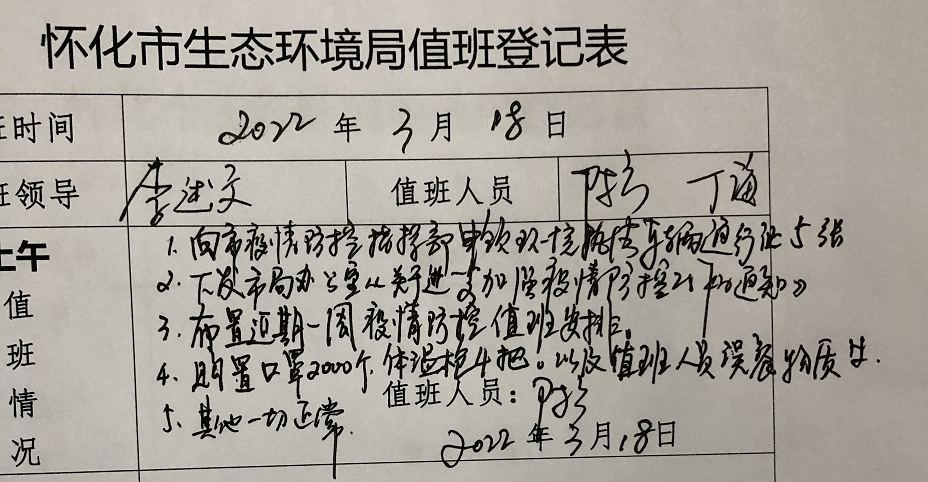 怀化市生态环境局值班登记表
班时间 2022 年 3 月 18 日
班领导 李述文 值班人员 丁海
上午
值班情况
1. 向市疫情防控指挥部申领环境执法车辆通行证5张
2. 下发市局办公室《关于进一步加强疫情防控工作的通知》
3. 布置近期一周疫情防控值班安排。
4. 购置口罩2000个, 体温枪4把。以及值班人员误餐物质等.
5. 其他一切正常.
值班人员:
2022 年 3 月 18 日